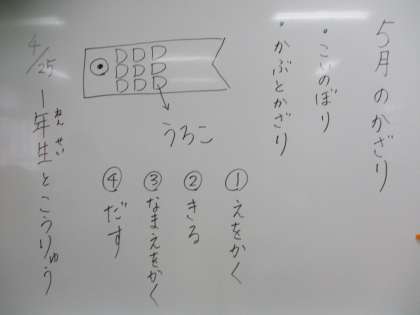 5月のかざり
・こいのぼり
・かぶとかざり
うろこ
①えをかく
②きる
③なまえをかく
④だす
4/25 1年生とこうりゅう
ねん せい